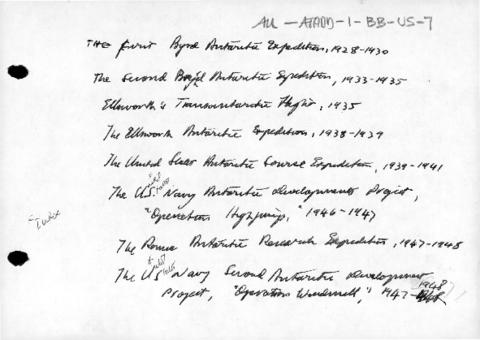 AU-ATADD-1-BB-US-7
THE first Byrd Antarctic Expedition, 1928-1930
The Second Byrd Antarctic Expedition, 1933-1935
Ellsworth's Transantarctic Flight, 1935
The Ellsworth Antarctic Expedition, 1938-1939
The United States Antarctic Service Expedition, 1939-1941
The U.S. Navy Antarctic Developments Project,
"Operation Highjump," 1946-1947
The Ronne Antarctic Research Expedition, 1947-1948
The US Navy Second Antarctic Development
Project, "Operation Windmill," 1947-1948